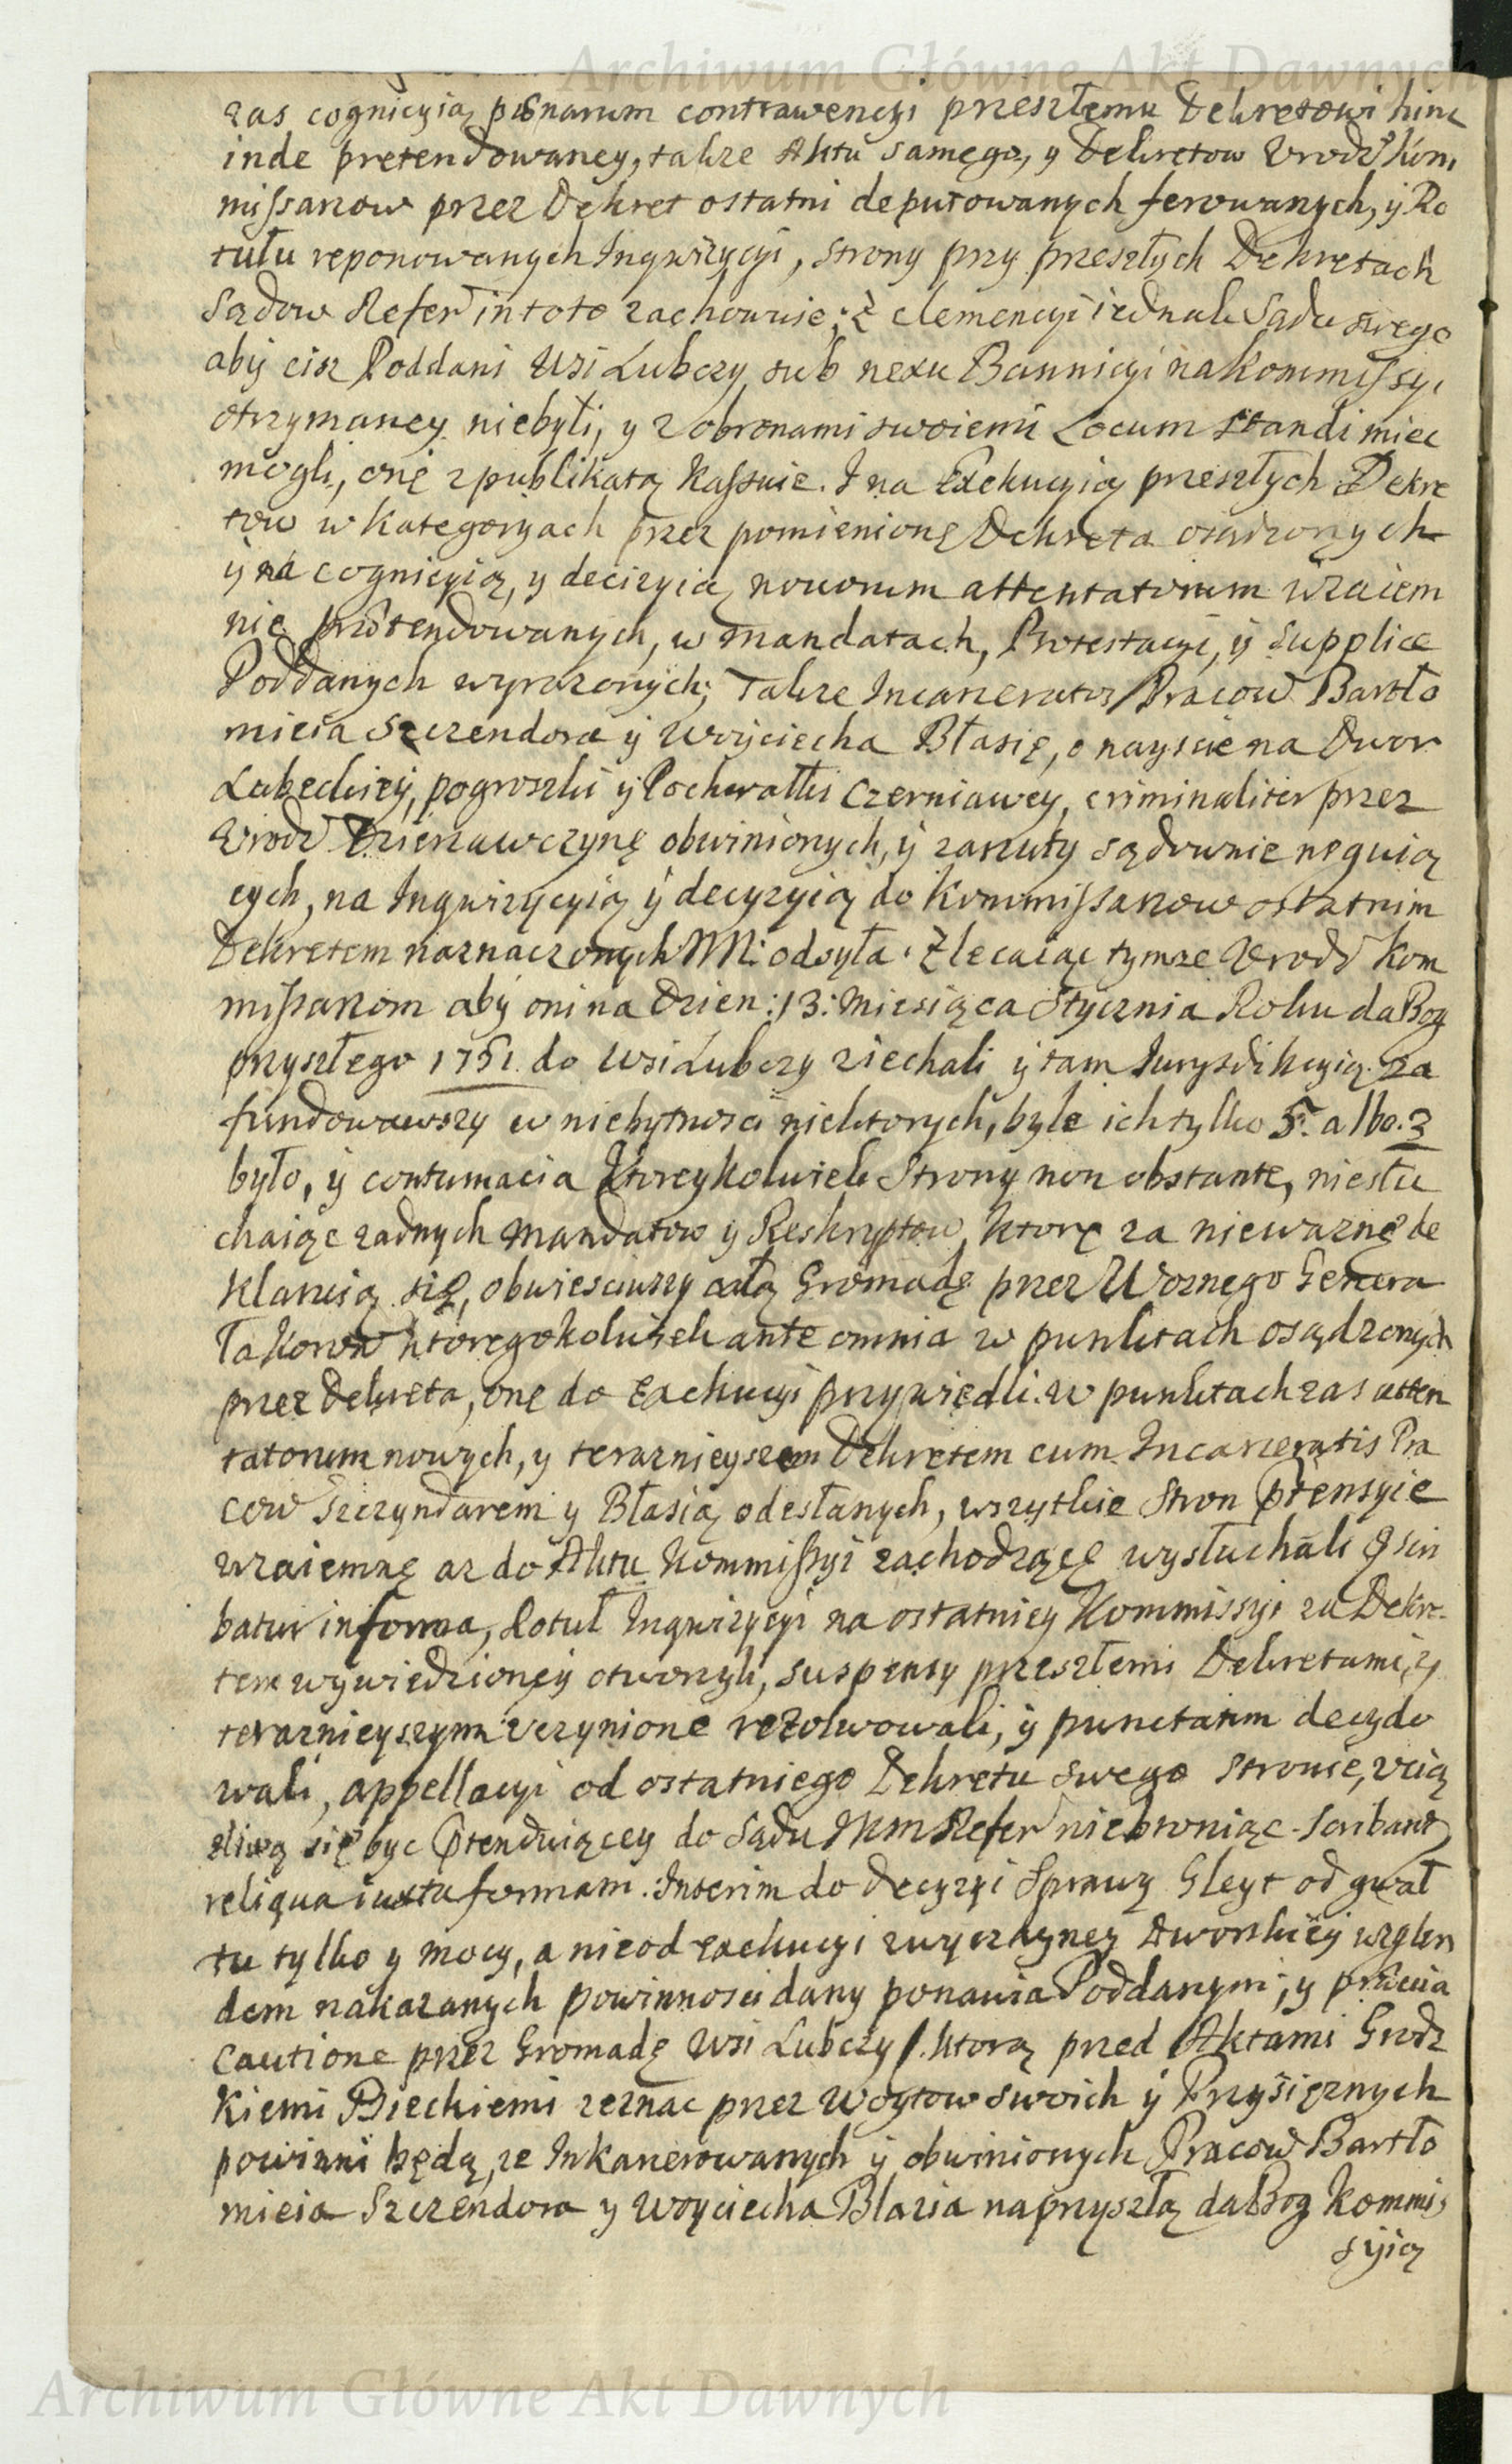 Archiwum Główne Akt Dawnych
zas cognicyią pœnarum contrawencyi przeszłemu Dekretowi hinc
inde pretendowaney, takze Aktu samego, y Dekretow Urodz Kom,
missarzow przez Dekret ostatni deputowanych ferowanych, y Ro
tułu reponowanych Inqwizycyi, strony przy przeszłych Dekretach
Sądow Refer in toto zachowuie; Z clemencyi iednak Sądu swego
aby ciz Poddani Wsi Lubczy sub nexu Bannicyi na Kommissyi
otrzymaney niebyli, y z obronami swoiemi Locum standi miec
mogli, onę z publikatą kassuie. I na Exekucyią przeszłych Dekre
tow w Kategoryach przez pomienionę Dekreta osądzonych
y na cognicyią, y decizyią nouorum attentatorum wzaiem
nie prætendowanych, w Mandatach, Protestacyi, y Supplice
Poddanych wyrazonych; Takze Incarceratos Pracow Bartło
mieia Szczendora y Woyciecha Błasię, o nayscie na Dwor
Lubeckiey, pogroszki y Pochwałki Czerniawey, criminaliter przez
Urodz Dzierzawczynę obwinionych, y zarzuty sądownie neguią
cych, na Inqwizycyią y decyzyią do Kommissarzow ostatnim
Dekretem naznaczonych M: odsyła. Zlecaiąc tymze Urodz Kom
missarzom aby oni na Dzien: 13: Miesiąca Stycznia Roku da Bog
przyszłego 1751. do Wsi Lubczy ziechali y tam Jurysdikcyią za
fundowawszy w niebytnosci niektorych, byle ich tylko 5. albo. 3
było, y contumacia ktoreykolwiek Strony non obstante, niesłu
chaiąc zadnych Mandatow y Reskryptow, ktorę za niewaznę de
klaruią się, obwiesciwszy całą Gromadę przez Woznego Genera
ła Koron ktoregokolwiek ante omnia w punktach osądzonych
przez Dekreta, onę do Exekucyi przywiedli. w punktach zas atten
tatorum nowych, y teraznieyszem Dekretem cum Incarceratis Pra
cow Szczyndarem y Błasią odesłanych, wszytkie Stron ptensyie
wzaiemnę az do Aktu Kommissyi zachodzącę wysłuchali
batur in forma, Rotuł Inqwizycyi na ostatniey Kommissyi za Dekre-
tem wywiedzioney otworzyli, suspensy przeszłemi Dekretami, y
teraznieyszym uczynione rezolwowali, y punctatim decydo
wali, appellacyi od ostatniego Dekretu swego stronie, ucią
zliwą się byc ptenduiącey do Sądu JKM Refer niebroniąc. Scribant
reliqua iuxta formam. Interim do decyzyi Sprawy Gleyt od gwał
tu tylko y mocy, a nie od exekucyi zwyczayney Dworskiey wzglen
dem nakazanych powinnosci dany ponawia Poddanym; y præuia
cautione przez Gromadę Wsi Lubczy /. ktorą przed Aktami Grodz
kiemi Bieckiemi zeznac przez Woytow swoich y Przysięznych
powinni będą, ze Inkarcerowanych y obwinionych Pracow Bartło
mieia Szczendora y Woyciecha Blazia na przyszłą da Bog Kommis,
syią
Archiwum Główne Akt Dawnych